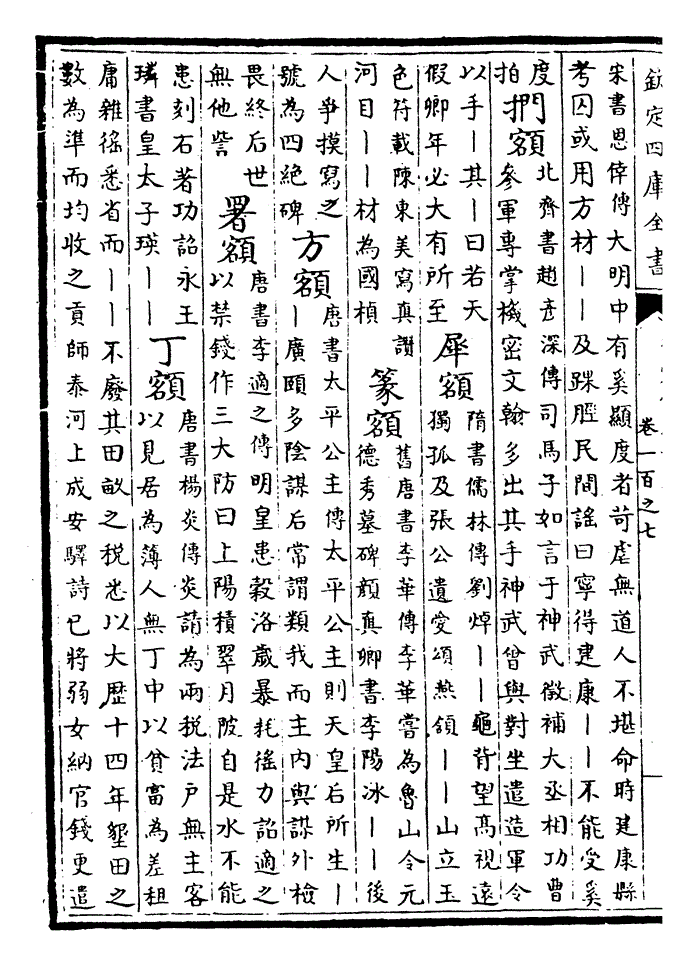 欽定四庫全書
卷一百之七
宋書恩倖傳大明中有奚顯度者苛虐無道人不堪命時建康縣
考囚或用方材丨丨及踝脛民間謠曰寧得建康丨丨不能受奚
度
拍
捫額
北齊書趙彥深傳司馬子如言于神武徵補大丞相功曹
參軍專掌機密文翰多出其手神武曾與對坐遣造軍令
以手丨其丨曰若天
假卿年必大有所至
犀額
隋書儒林傳劉焯丨丨龜背望高視遠
獨孤及張公遺愛頌燕頷丨丨山立玉
色符載陳東美寫真讚
河目丨丨材為國楨
篆額
舊唐書李華傳李華嘗為魯山令元
德秀墓碑顏真卿書李陽冰丨丨後
人爭摸寫之
號為四絕碑
方額
唐書太平公主傳太平公主則天皇后所生丨
丨廣頤多陰謀后常謂類我而主內與謀外檢
畏終后世
無他訾
署額
唐書李適之傳明皇患穀洛歲暴耗徭力詔適之
以禁錢作三大防曰上陽積翠月陂自是水不能
患刻石著功詔永王
璘書皇太子瑛丨丨
丁額
唐書楊炎傳炎請為兩税法戶無主客
以見居為薄人無丁中以貧富為差租
庸雜徭悉省而丨丨不廢其田畝之税悉以大歴十四年墾田之
數為準而均收之貢師泰河上成安驛詩已將弱女納官錢更遣